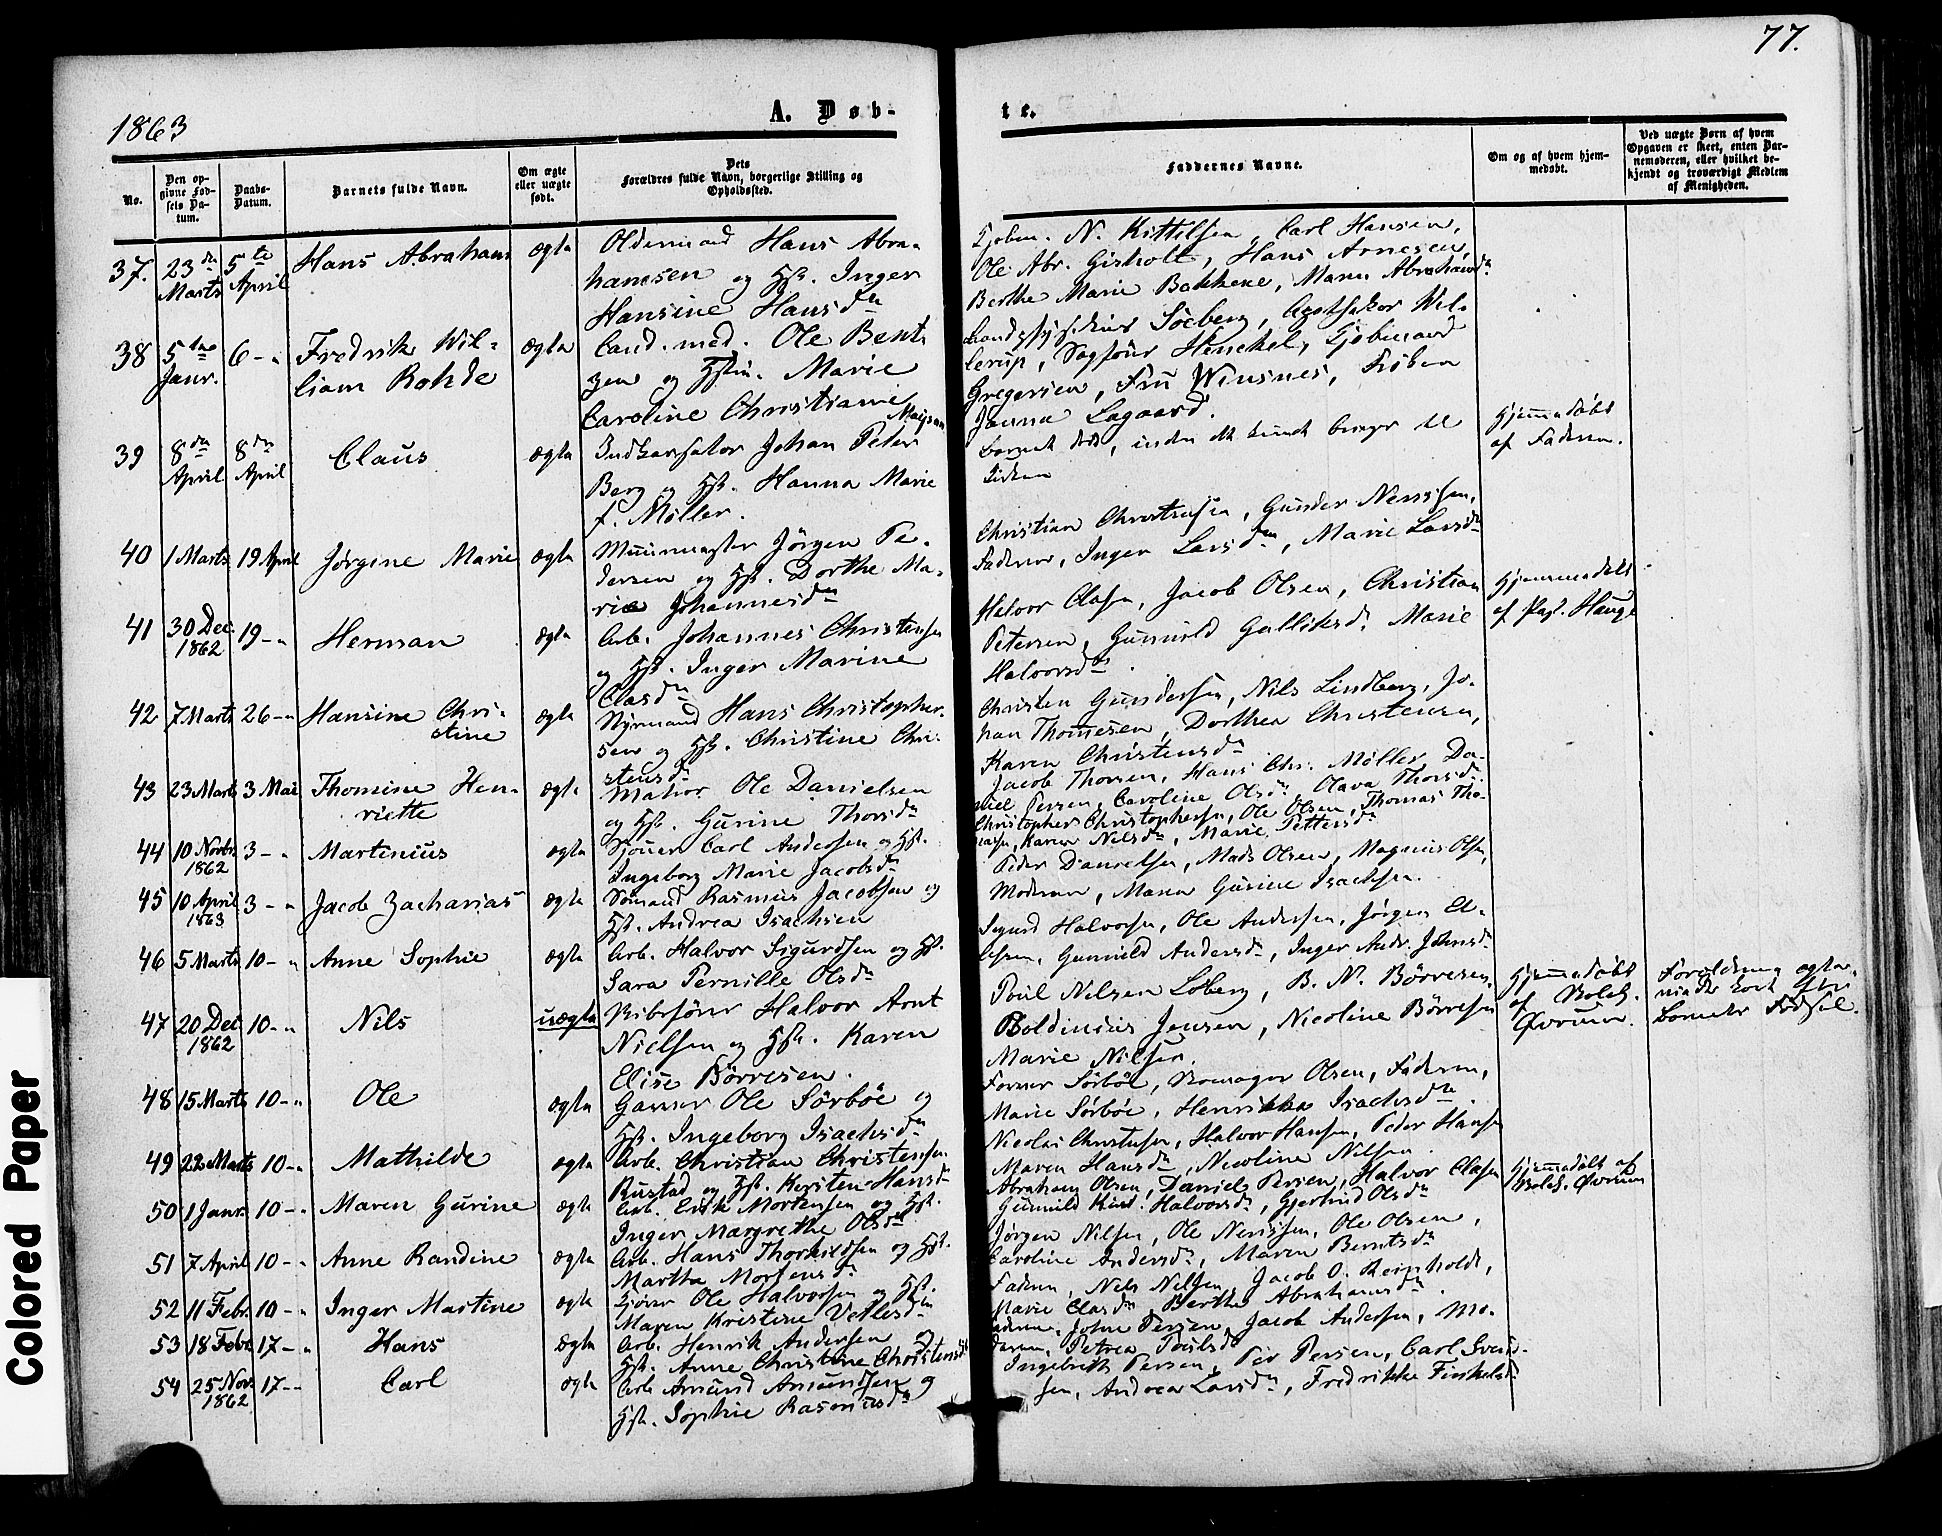 77.
1863
A. Døb-
te.
No.
Den opgivne Fødsels Datum.
Daabs-Datum.
Barnets fulde Navn.
Om ægte eller uægte født.
Dets Forældres fulde Navn, borgerlige Stilling og Opholdssted.
Faddernes Navne.
Om og af hvem hjemmedøbt.
Ved uægte Børn af hvem Opgaven er skeet, enten Barnemoderen, eller hvilket bekjendt og troværdigt Medlem af Menigheden.
37. 23de Marts 5te April Hans Abraham ægte Oldermand Hans Abra-
hamsen og Hst. Inger
Hansine Hansdtr
N. Kittelsen, Carl Hansen,
Ole Abr. Gisholt, Hans Arnesen,
Berthe Marie Bakkene, Maren Abrahamsdtr
38 5te Janr. 6 - " Fredrik Wil-
liam Rohde ægte Cand. med. Ole Bent-
zen og Hstin. Marie
Caroline Christiane
Søeberg, Apotheker Wel-
lerup, Henckel,
Gregersen, Fru Winsnes, Frøken
Janna Aagaard.
39 8de April 8de April Claus ægte Johan Peter
Berg og Hst. Hanna Marie
f. Møller.
Barnet døde, inden det kunde bringes til
Kirken
Hjemmedøbt
af Faderen.
40 1 Marts 19 April Jørgine Marie ægte Muurmester Jørgen Pe-
dersen og Hst. Dorthe Ma-
rie Johannesdtr
Christian Christensen, Gunder Nenssen,
Faderen, Inger Larsdtr, Marie Larsdtr
41 30 Dec. 1862 19 - " Herman ægte Arb. Johannes Christensen
og Hst. Inger Marine
Clasdtr
Halvor Clasen, Jacob Olsen, Christian
Petersen, Gunnild Gulliksd. Marie
Halvorsdtr.
Hjemmedøbt
af Past. Hauge
42 7 Marts 26 - " Hansine Chri-
stine ægte Styrmand Hans Christopher-
sen og Hst. Christine Chri-
stensdtr
Christen Gundersen, Nils Lindberg, Jo-
han Thomesen, Dorthea Christensen,
Karen Christensdtr
43 23 Marts 3 Mai Thomine Hen-
riette ægte Matros Ole Danielsen
og Hst. Gurine Thorsdtr
Jacob Thorsen, Hans Chr. Møller, Da-
niel Persen, Caroline Olsdtr, Olava Thorsdtr.
44 10 Novbr. 1862 3 - " Martinius ægte Carl Andersen og Hst.
Ingeborg Marie Jacobsdtr
Christopher Christophersen, Ole Olsen, Thomas Tho-
Karen Nielsdtr, Marie Pettersdtr
45 10 April 1863 3 - " Jacob Zacharias ægte Sømand Rasmus Jacobsen og
Hst. Andrea Isachsen
Peder Danielsen, Mads Olsen, Magnus Olsen,
Moderen, Maren Gurine Isachsen.
46 5 Marts 10 - " Anne Sophie ægte Arb. Halvor Sigurdsen og Hst.
Sara Pernille Olsdtr
Sigurd Halvorsen, Ole Andersen, Jørgen El-
lefsen, Gunnild Andersdtr, Inger Andr. Johnsdtr
47 20 Dec 1862 10 - " Nils uægte Halvor Arnt
Nielsen og Hst. Karen
Elise Børresen.
Poul Nilsen Løberg, B. N. Børresen,
Boldinius Jensen, Nicoline Børresen
Marie Nilsen.
Hjemmedøbt
af
Øvrum.
Forældrene ægte-
viede kort efter
Barnets Fødsel.
48 15 Marts 10 - " Ole ægte Garver Ole Sørbøe og
Hst. Ingeborg Isachsdtr
Sørbøe, Olsen, Faderen,
Marie Sørbøe, Henrikka Isachsdtr.
49 22 Marts 10 - " Mathilde ægte Arb. Christian Christensen
Rustad og Hst. Kersten Hansdtr
Nicolai Christensen, Halvor Hansen, Peder Hansen
Maren Hansdtr, Nicoline Nilsen.
50 1 Janr. 10 - " Maren Gurine ægte Arb. Erik Mortensen og Hst.
Inger Margrethe Olsdtr
Abraham Olsen, Daniel Persen, Halvor Clasen
Gunnild Kirst. Halvorsdtr, Gjertrud Olsdtr
Hjemmedøbt af
Øvrum
51 7 April 10 - " Anne Randine ægte Arb. Hans Thorkildsen og Hst.
Martha Mortensdtr
Jørgen Nilsen, Ole Nenssen, Ole Olsen,
Caroline Andersdtr, Maren Berntsdtr
52 11 Febr. 10 - " Inger Martine ægte Ole Halvorsen og Hst.
Maren Kristine Vetlesdtr
Faderen, Nels Nilsen, Jacob O. Reinholdt,
Marie Clasdtr, Berthe Abrahamsdtr.
53 18 Febr 17 - " Hans ægte Arb. Henrik Andersen og
Hst. Anne Christine Christensdtr
Faderen, John Persen, Jacob Andersen, Mo-
deren, Petrea Poulsdtr
54 25 Nov. 1862 17 - - Carl ægte Arb Amund Amundsen og
Hst. Sophie Rasmusdtr
Ingebrikt Persen, Per Persen, Carl Svend-
sen, Andrea Larsdtr, Fredrikke
Colored Paper